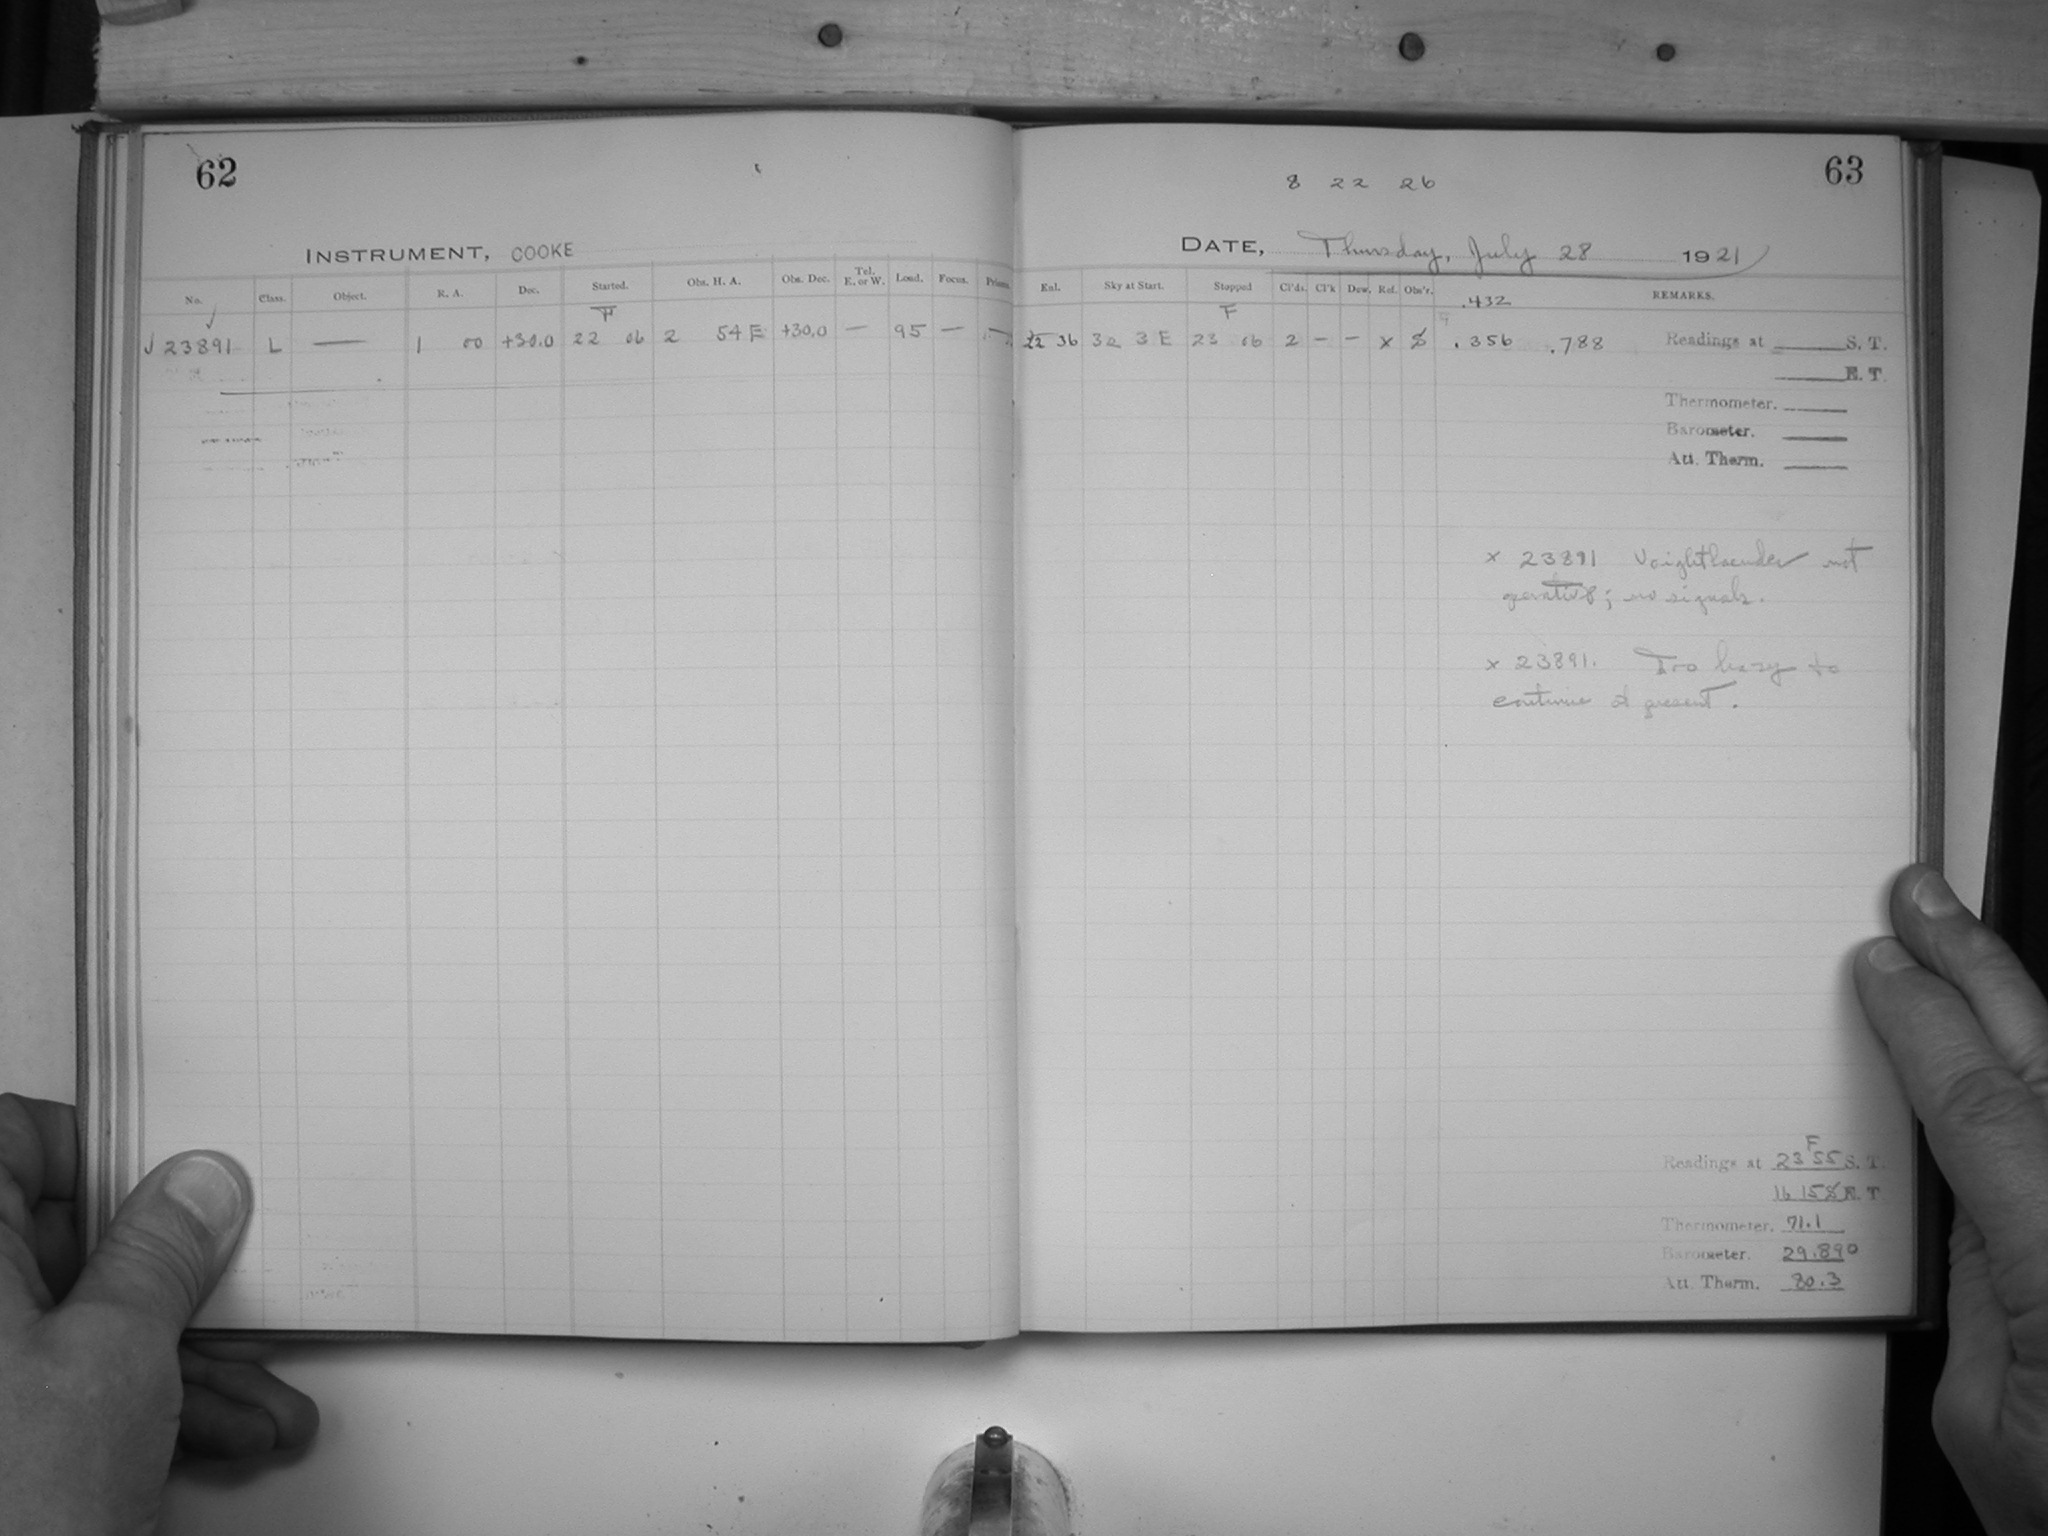 62
INSTRUMENT, COOKE
No. Class. Object. R. A. Dec. Started. Obs. H. A. Obs. Dec. Tel. E. or W. Load. Focus. Prisms.
F
√ 23891 L — 1 00 +30.0 22 06 2 54 E +30.0 — 95 — —
63
8 22 26
DATE, Thursday, July 28 1921
Exl. Sky at Start. Stopped Cl'ds. Cl'k Dew. Ref. Obs'r. .432 REMARKS.
F
22 36 32 3 E 23 06 2 — — x S .356 .788 Readings at S. T.
E. T.
Thermometer.
Barometer.
Att. Therm.
x 23891 Voightlaender not
operative; no signals.
x 23891. Too hazy to
continue at present.
F
Readings at 23 55 S. T.
16 158 E. T
Thermometer. 71.1
Barometer. 29.890
Att. Therm. 80.3